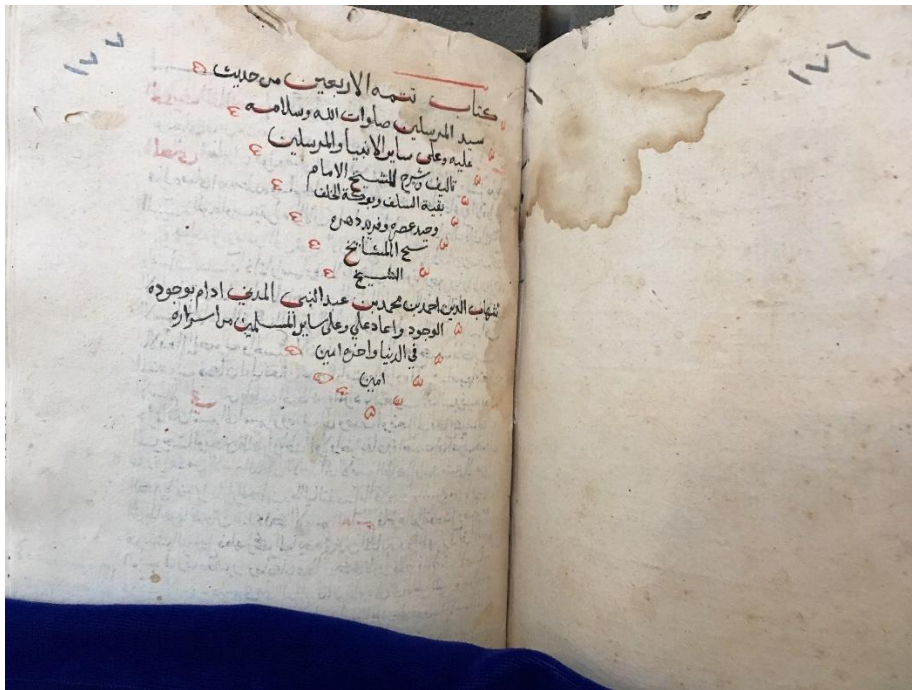 ١٧٦
١٧٧
كتاب تتمه الاربعين من حديث
سيد المرسلين صلوات الله وسلامه
عليه وعلى ساير الانبيا والمرسلين
تاليف وشرح للشيخ الامام
بقية السلف وبركة الخلف
وحيد عصره وفريد دهره
شيخ المشايخ
الشيخ
شهاب الدين احمد بن محمد بن عبد النبي المدني ادام بوجوده
الوجود واعاد علي وعلى ساير المسلمين من اسراره
في الدنيا واخره امين
امين